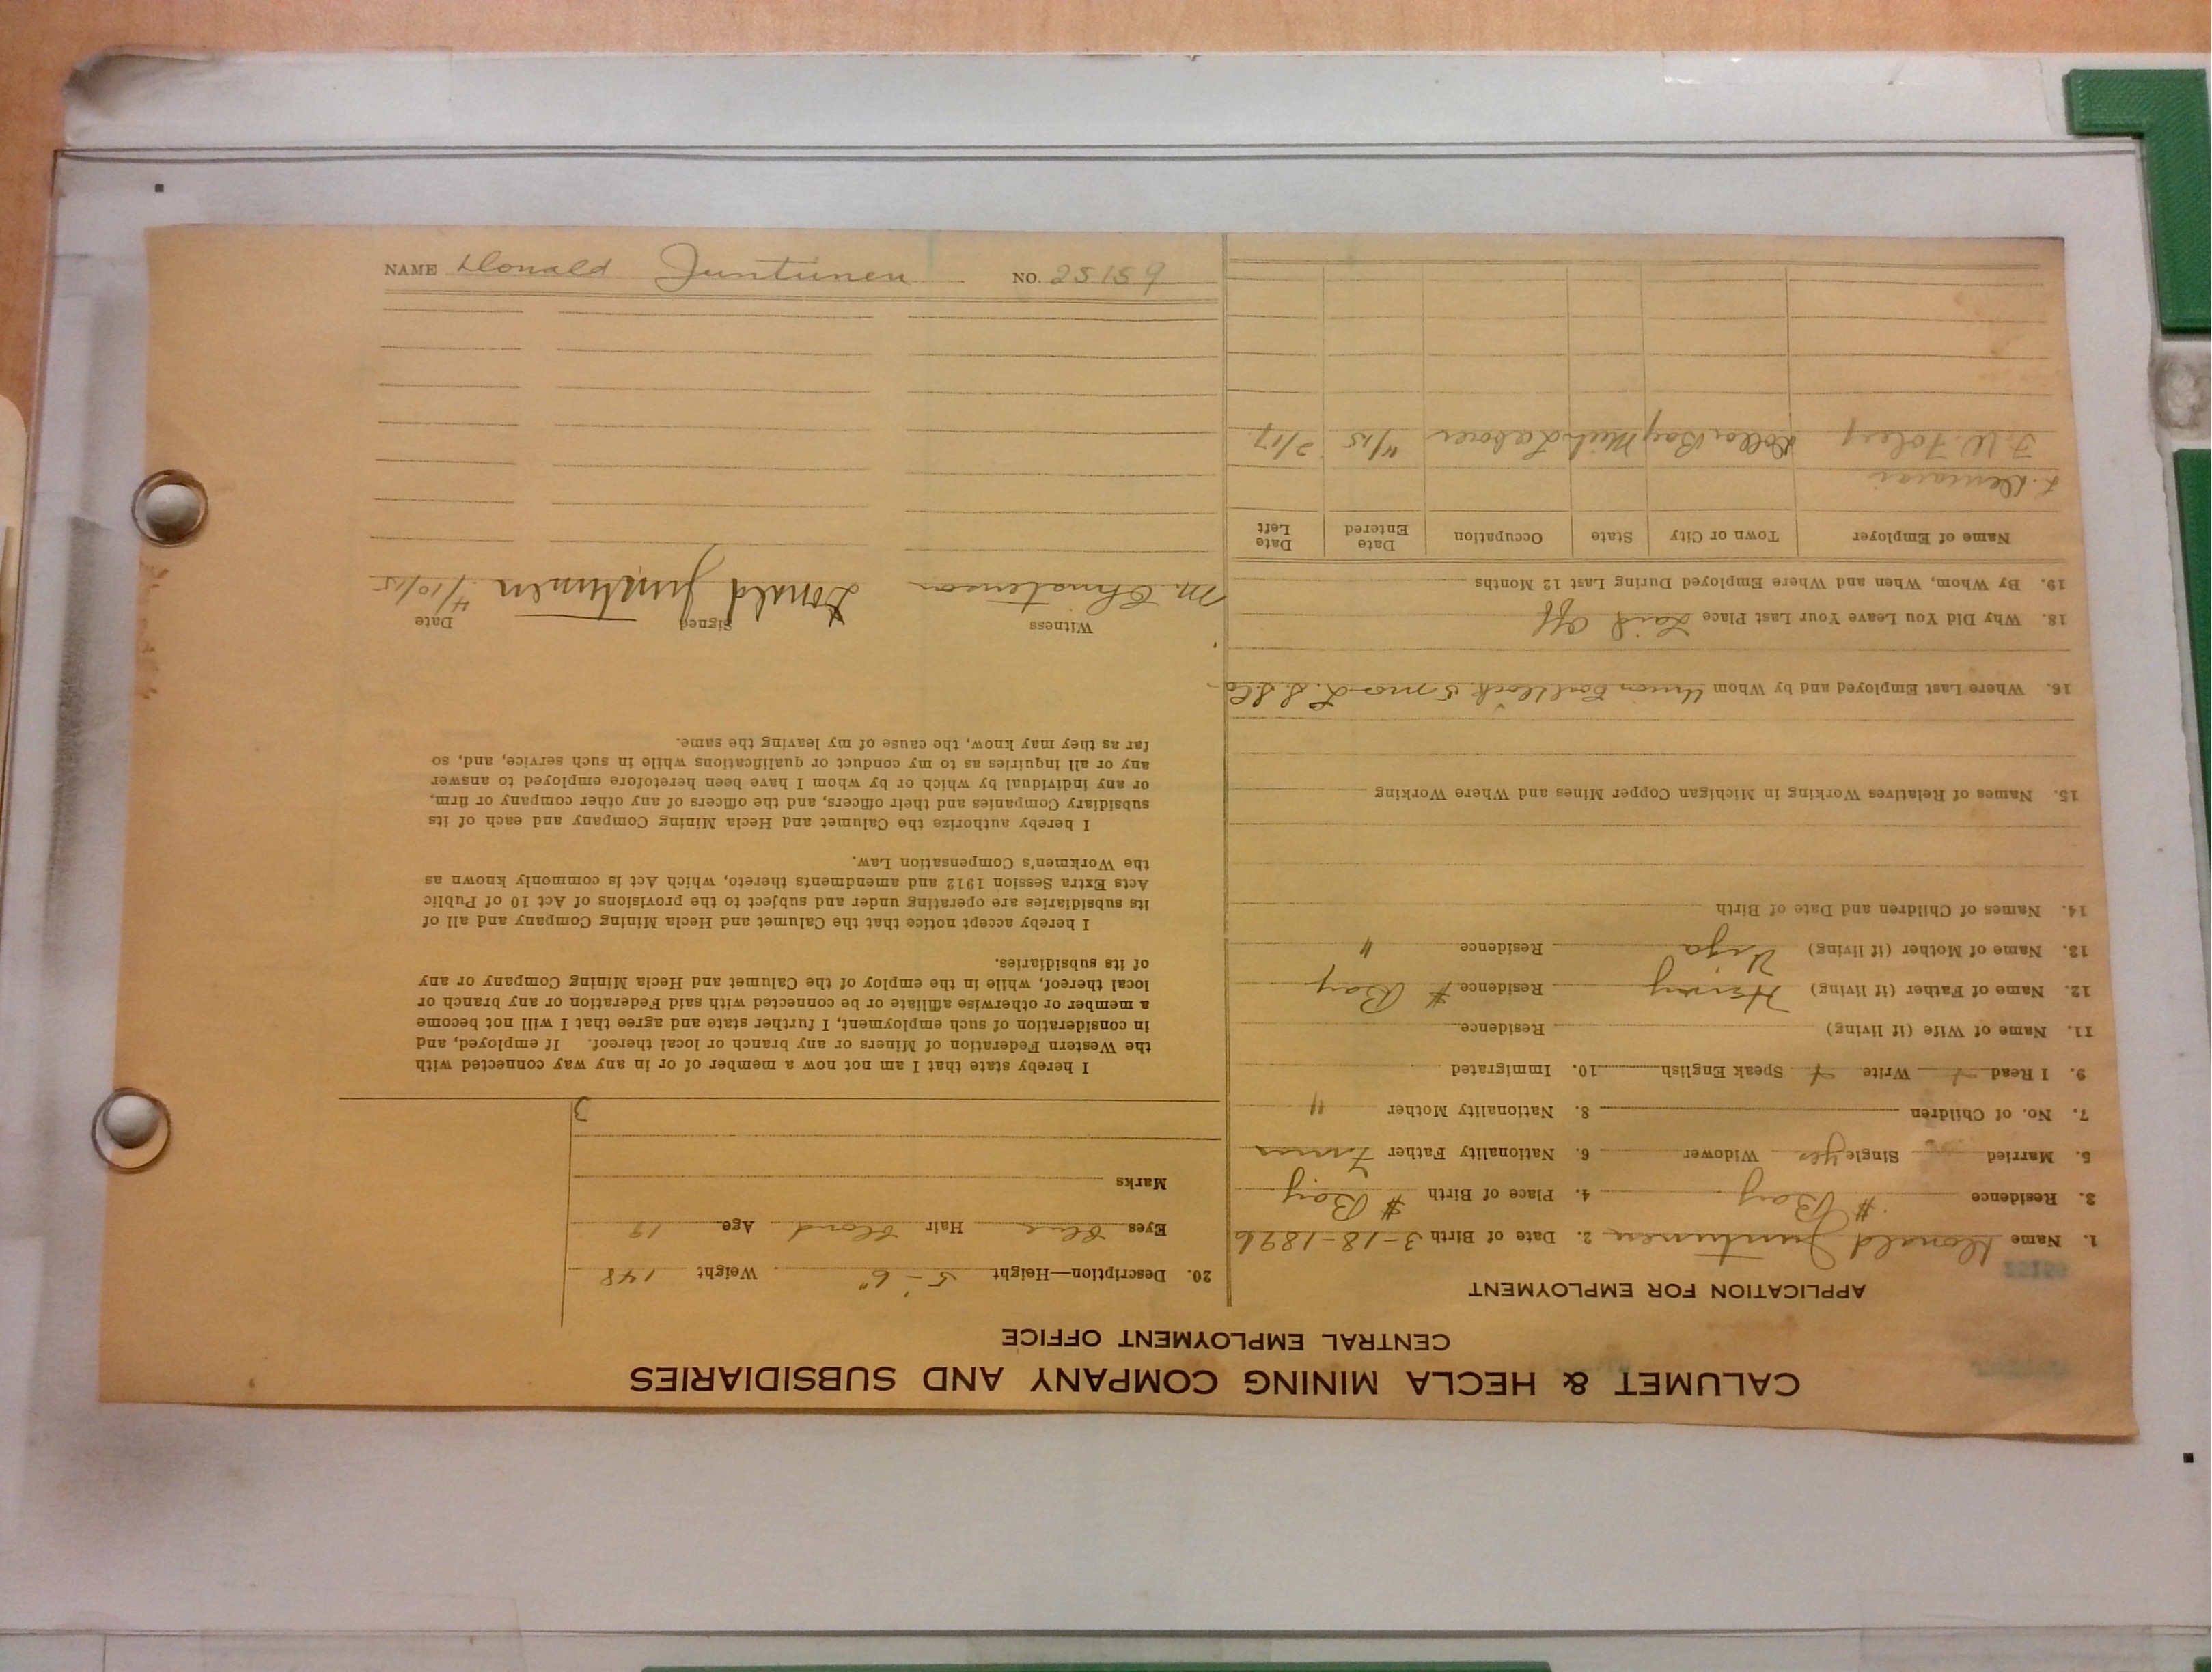 CALUMET & HECLA MINING COMPANY AND SUBSIDIARIES
CENTRAL EMPLOYMENT OFFICE
APPLICATION FOR EMPLOYMENT
1. Name Donald Juntunen 2. Date of Birth 3-18-1896
3. Residence # Bay 4. Place of Birth # Bay
5. Married Single yes Widower 6. Nationality Father
7. No. of Children 8. Nationality Mother "
9. I Read Write Speak English 10. Immigrated
11. Name of Wife (if living) Residence
12. Name of Father (if living) Residence # Bay
13. Name of Mother (if living) Residence "
14. Names of Children and Date of Birth
15. Names of Relatives Working in Michigan Copper Mines and Where Working
16. Where Last Employed and by Whom Union 5 mos
18. Why Did You Leave Your Last Place Laid Off
19. By Whom, When and Where Employed During Last 12 Months
Name of Employer Town or City State Occupation Date Entered Date Left
F. W. Foley Dollar Bay Mich Laborer 4/15 2/17
20. Description—Height 5-6" Weight 148
Eyes blue Hair blond Age 19
Marks
3
I hereby state that I am not now a member of or in any way connected with
the Western Federation of Miners or any branch or local thereof. If employed, and
in consideration of such employment, I further state and agree that I will not become
a member or otherwise affiliate or be connected with said Federation or any branch or
local thereof, while in the employ of the Calumet and Hecla Mining Company or any
of its subsidiaries.
I hereby accept notice that the Calumet and Hecla Mining Company and all of
its subsidiaries are operating under and subject to the provisions of Act 10 of Public
Acts Extra Session 1912 and amendments thereto, which Act is commonly known as
the Workmen's Compensation Law.
I hereby authorize the Calumet and Hecla Mining Company and each of its
subsidiary Companies and their officers, and the officers of any other company or firm,
or any individual by which or by whom I have been heretofore employed to answer
any or all inquiries as to my conduct or qualifications while in such service, and, so
far as they may know, the cause of my leaving the same.
Witness Signed Date
M. Christenson Donald Juntunen 4/10/15
NAME Donald Juntunen NO. 25159